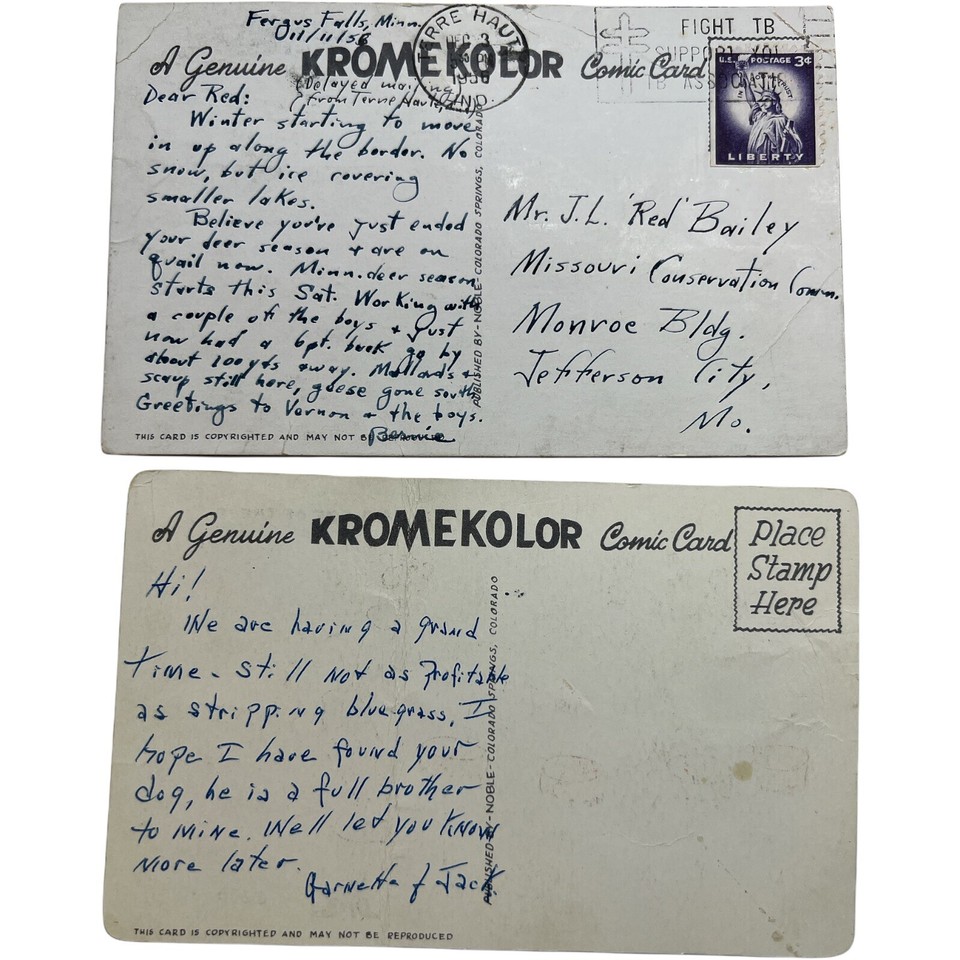 Fergus Falls, Minn.
A Genuine KROMEKOLOR Comic Card
(Delayed mailing)
(from Terre Haute,
TERRE HAUTE
DEC 3
1956
IND.
FIGHT TB
SUPPORT YOUR
TB ASSOCIATION
U.S. POSTAGE 3¢
IN GOD WE TRUST
LIBERTY
Dear Red:
Winter starting to move
in up along the border. No
snow, but ice covering
smaller lakes.
Believe you've just ended
your deer season & are on
quail now. Minn. deer season
starts this Sat. Working with
a couple of the boys & just
now had a 6pt. buck go by
about 100 yds away. Mallards &
scaup still here, geese gone south.
Greetings to Vernon & the boys.
Bernie
THIS CARD IS COPYRIGHTED AND MAY NOT BE REPRODUCED
PUBLISHED BY-NOBLE-COLORADO SPRINGS, COLORADO
Mr. J.L. 'Red' Bailey
Missouri Conservation Comm.
Monroe Bldg.
Jefferson City,
Mo.
A Genuine KROMEKOLOR Comic Card
Place
Stamp
Here
Hi!
We are having a grand
time - still not as profitable
as stripping bluegrass, I
hope I have found your
dog, he is a full brother
to mine. We'll let you know
more later.
Garnetta & Jack
PUBLISHED BY-NOBLE-COLORADO SPRINGS, COLORADO
THIS CARD IS COPYRIGHTED AND MAY NOT BE REPRODUCED